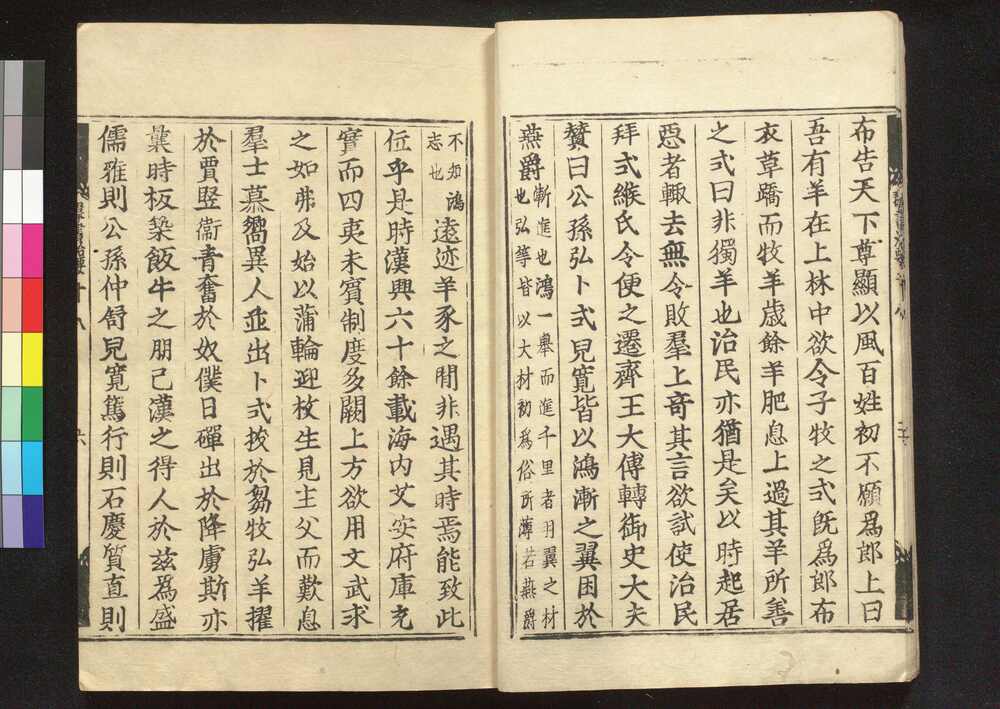 布告天下尊顯以風百姓初不願爲郎上曰
吾有羊在上林中欲令子牧之式旣爲郎布
衣草蹻而牧羊歲餘羊肥息上過其羊所善
之式曰非獨羊也治民亦猶是矣以時起居
惡者輒去無令敗羣上奇其言欲試使治民
拜式緱氏令便之遷齊王大傅轉御史大夫
贊曰公孫弘卜式兒寬皆以鴻漸之翼困於
燕爵漸進也鴻一舉而進千里者羽翼之材
也弘等皆以大材初爲俗所薄若燕爵
不知鴻
志也
遠迹羊豕之間非遇其時焉能致此
位乎是時漢興六十餘載海内艾安府庫充
實而四夷未賓制度多闕上方欲用文武求
之如弗及始以蒲輪迎枚生見主父而歎息
羣士慕嚮異人並出卜式拔於芻牧弘羊擢
於賈竪衞青奮於奴僕日磾出於降虜斯亦
曩時板築飯牛之朋已漢之得人於兹爲盛
儒雅則公孫仲舒兒寬篤行則石慶質直則